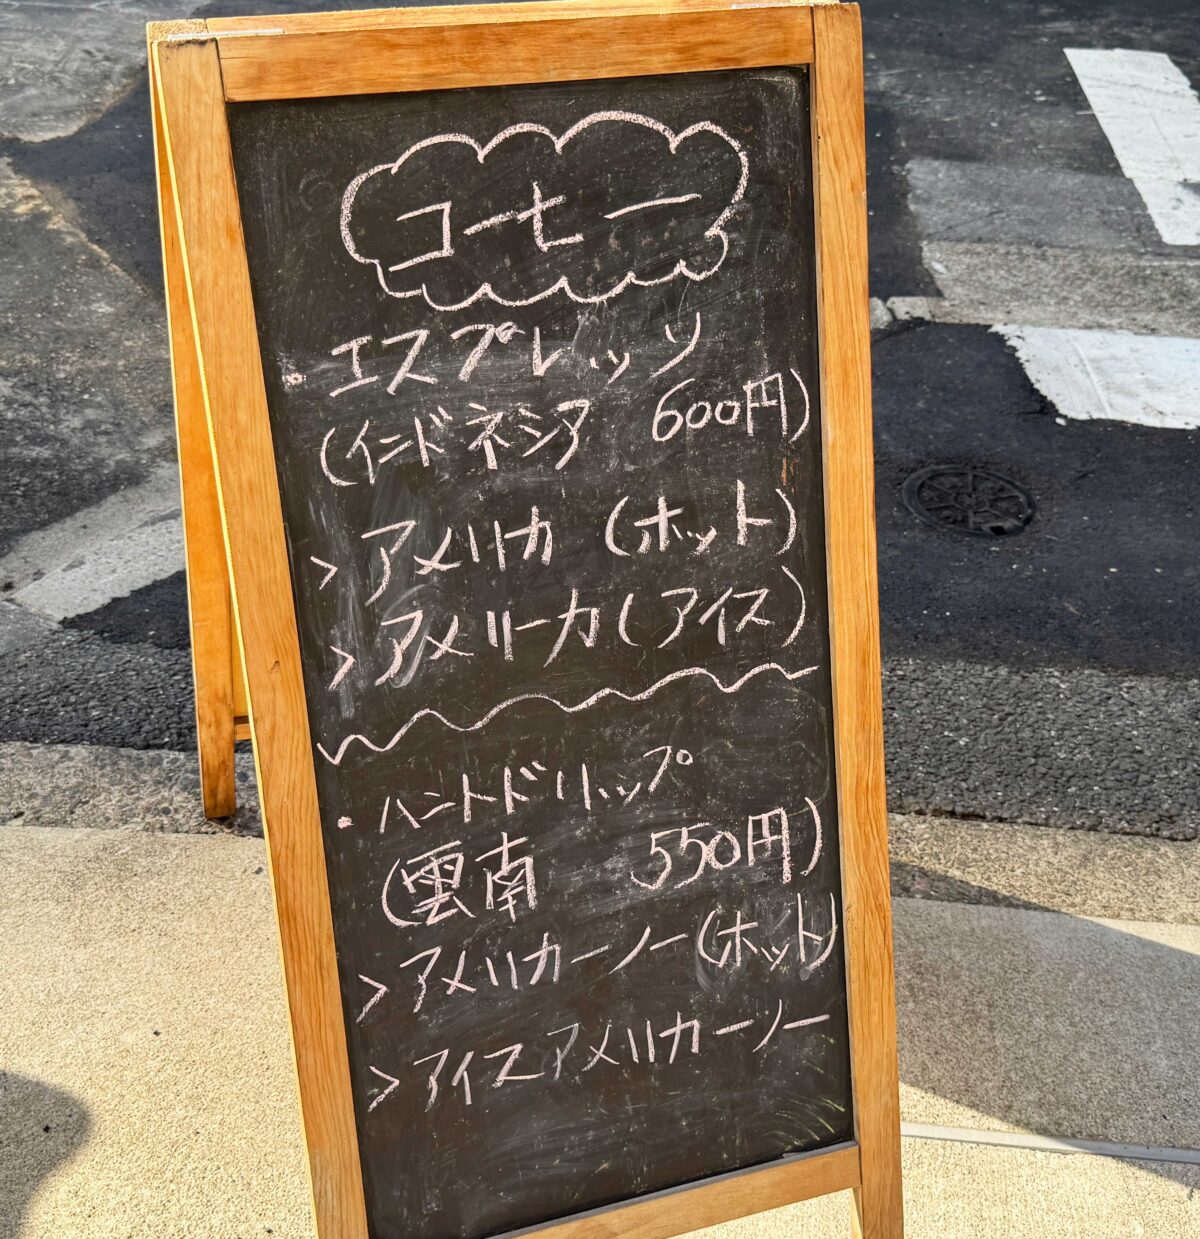 コーヒー
・エスプレッソ
(インドネシア 600円)
> アメリカ (ホット)
> アメリーカ (アイス)
・ハンドドリップ
(雲南 550円)
> アメリカーノー (ホット)
> アイスアメリカーノー